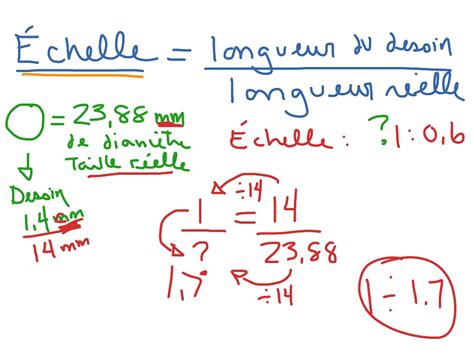 Échelle = longueur du dessin
longueur réelle
= 23,88 mm
de diamètre
Taille réelle
Échelle : ? 1 : 0,6
Dessin
1,4 mm
14 mm
÷14
1 = 14
? 23,88
1,7 ÷14
1 ÷ 1,7